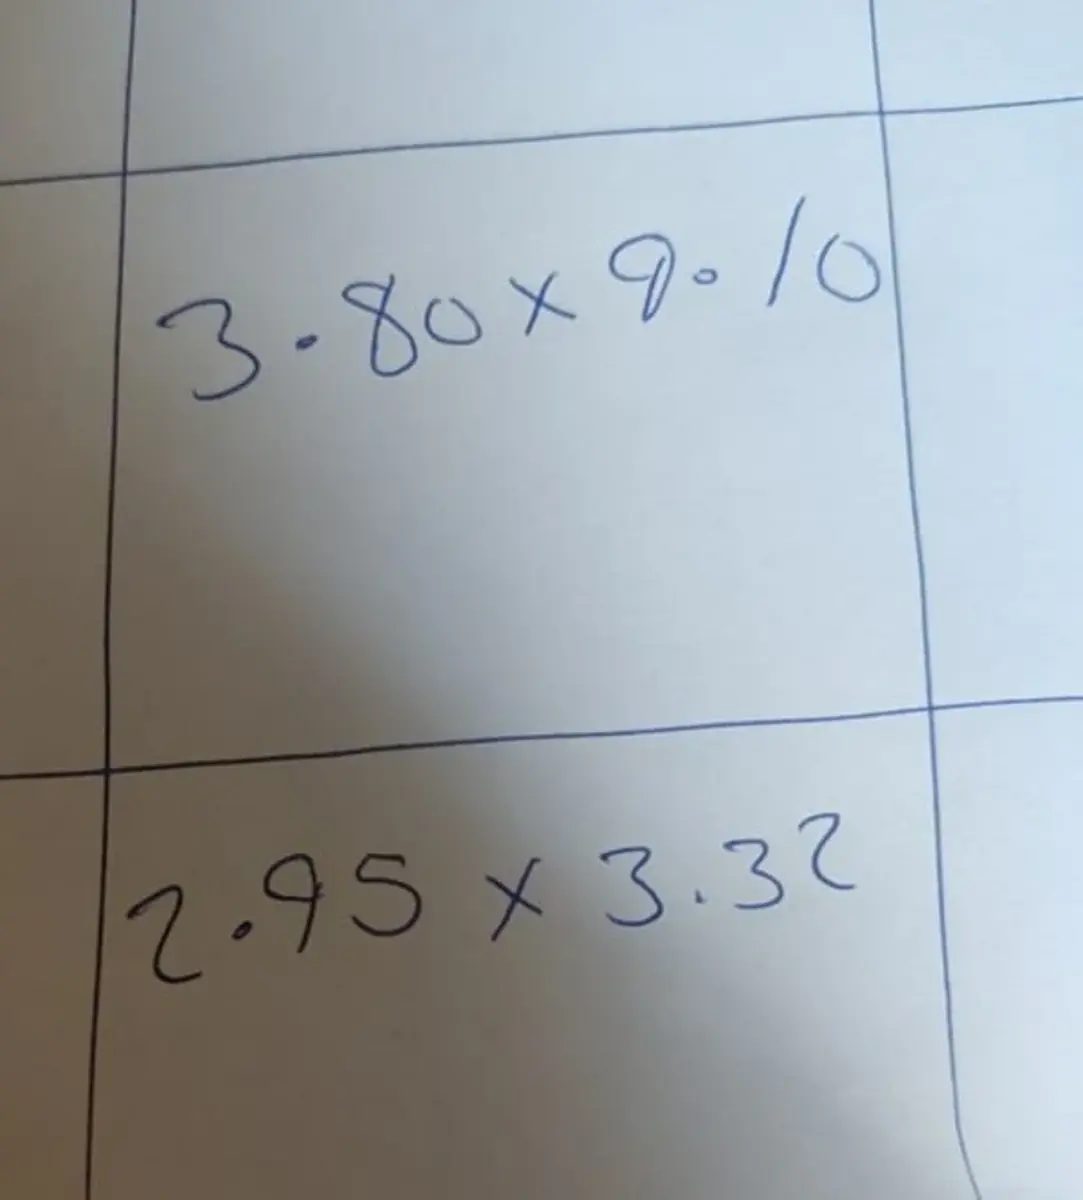 3.80 x 9.10
2.95 x 3.32